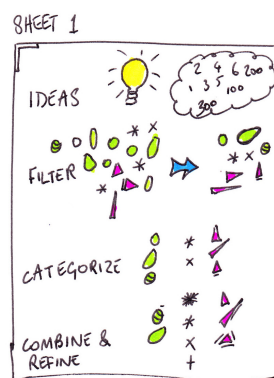 SHEET 1
IDEAS
2 4 6 200
1 3 5 100
300
FILTER
CATEGORIZE
COMBINE &
REFINE